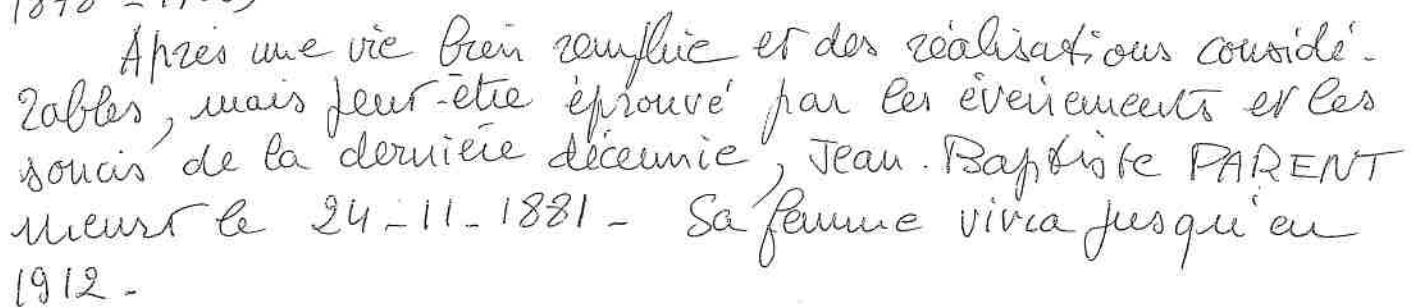 Après une vie bien remplie et des réalisations considé-
rables, mais peut-être éprouvé par les événements et les
soucis de la dernière décennie, Jean-Baptiste PARENT
meurt le 24-11-1881- Sa femme vivra jusqu'en
1912-